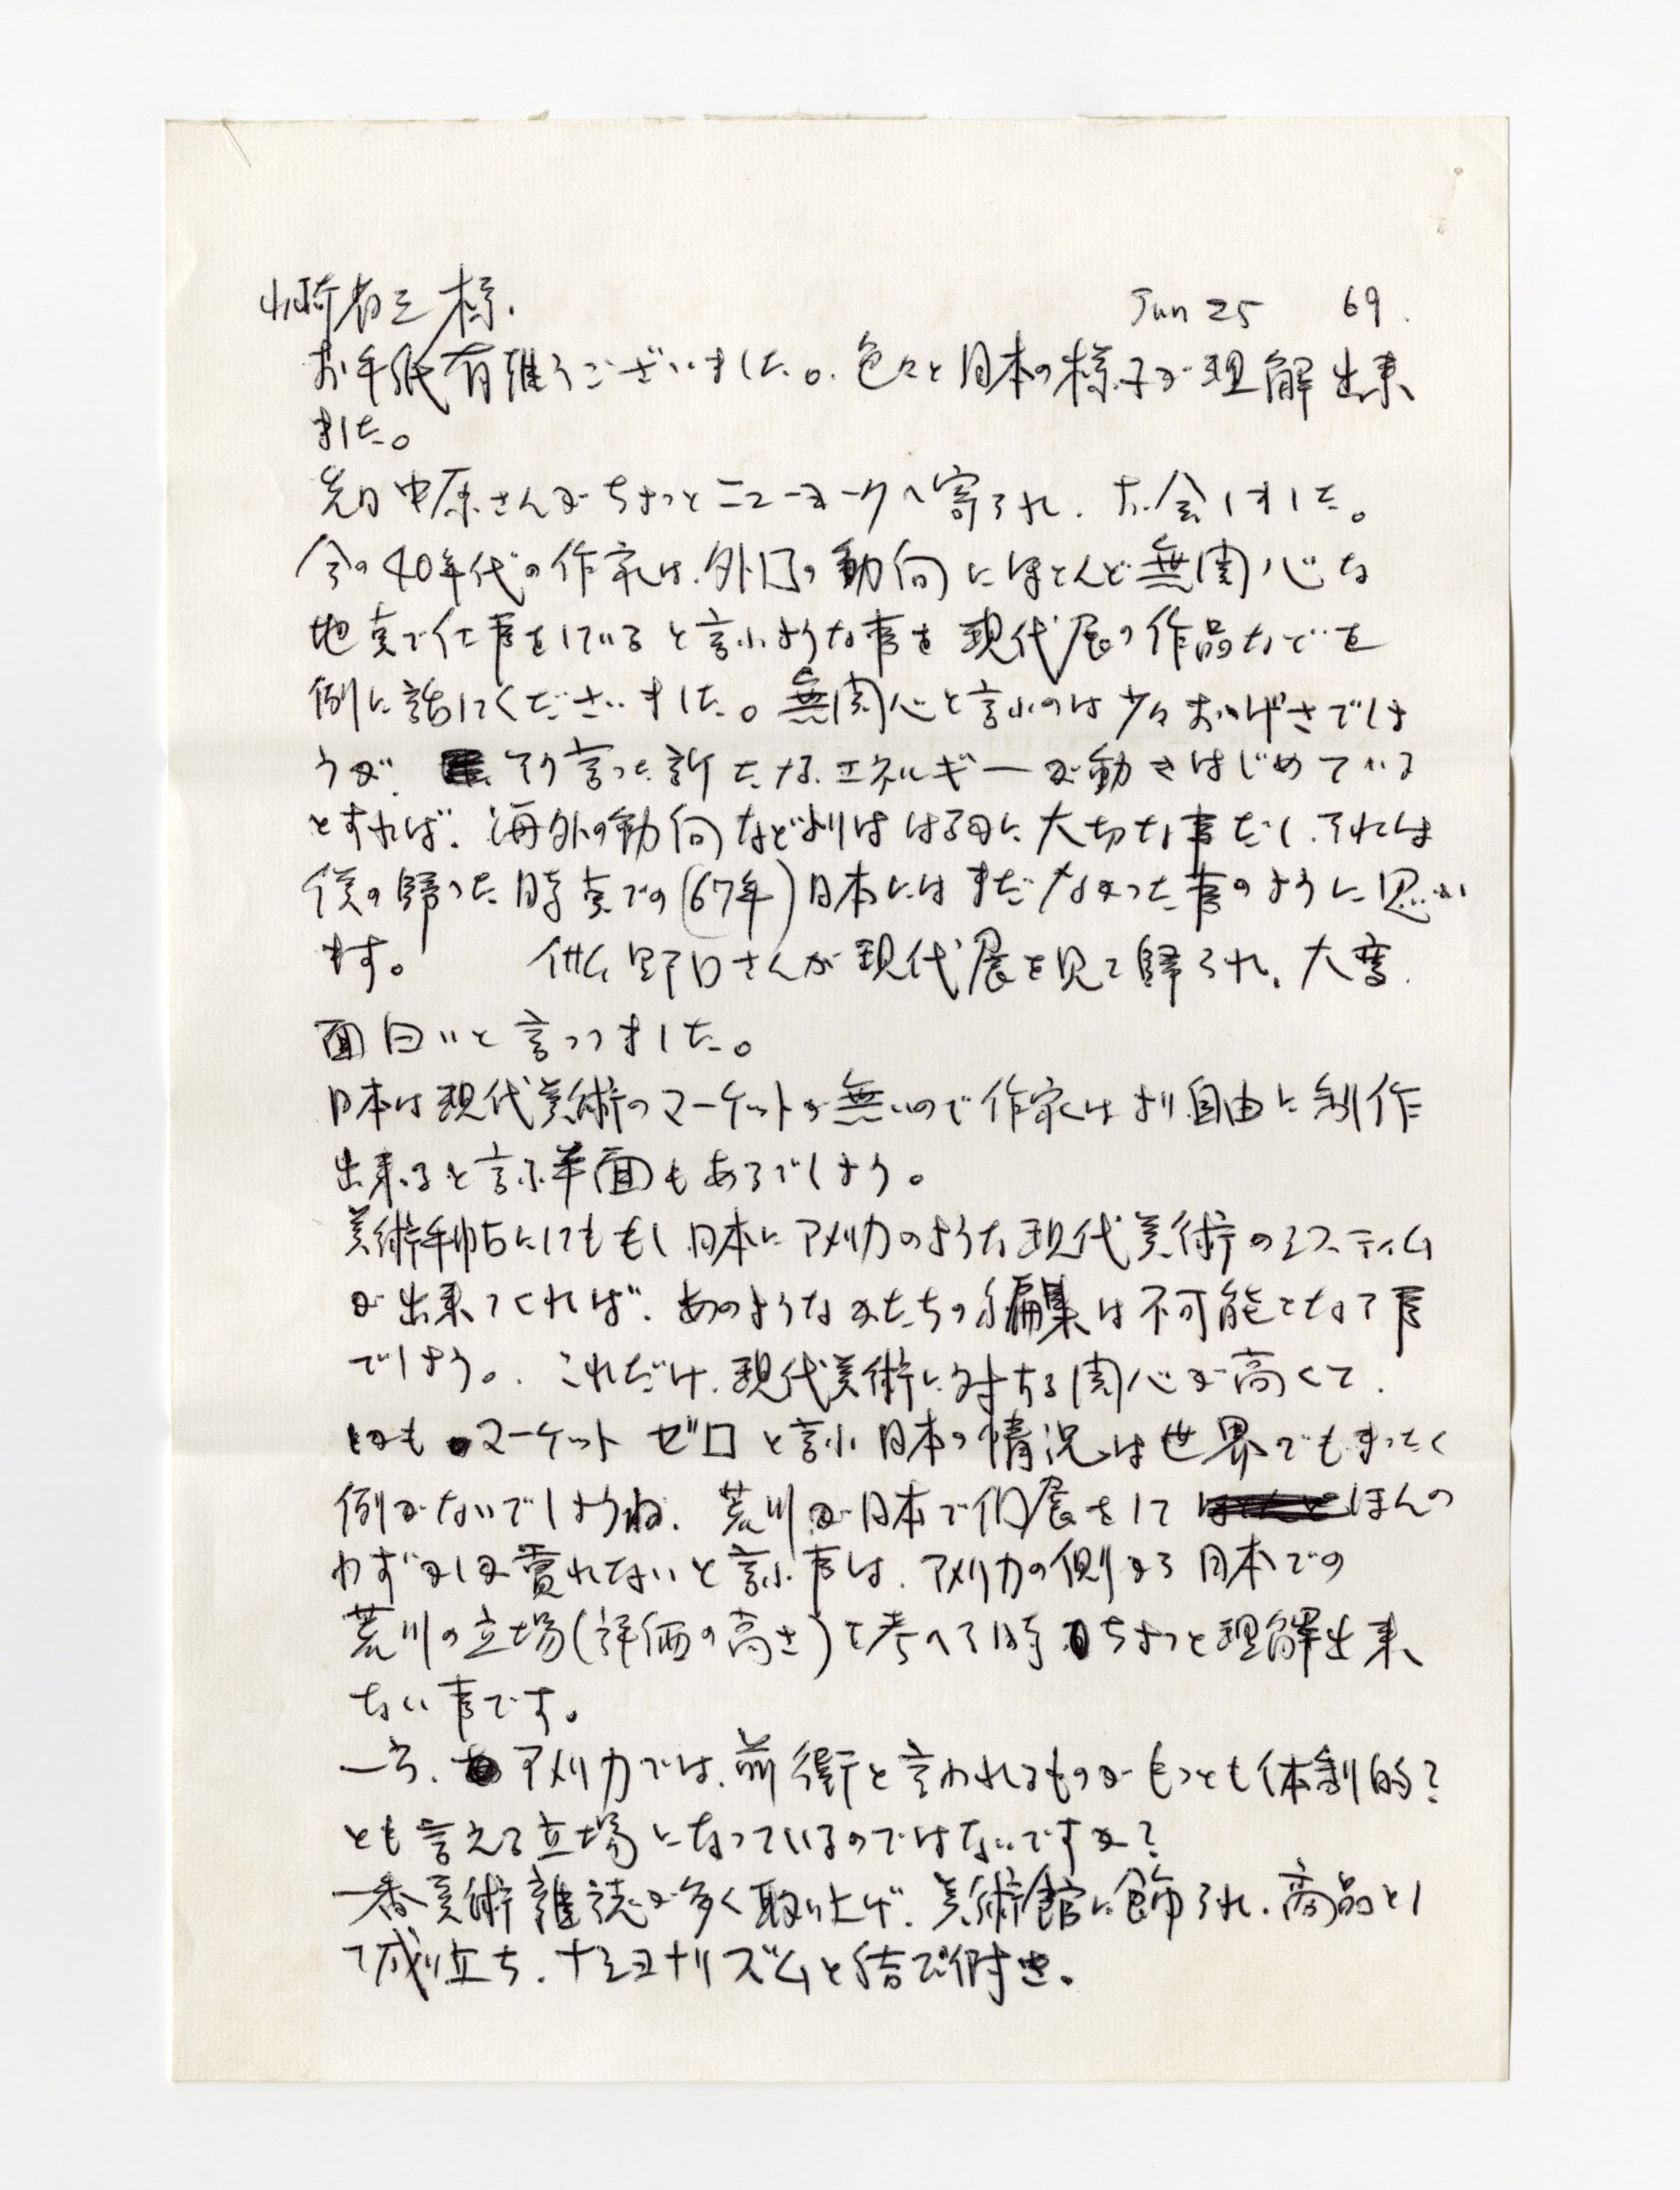 山崎省三様. Jun 25 69.
お手紙有難うございました。色々と日本の様子が理解出来
ました。
先日中原さんがちょっとニューヨークへ寄られ、お会いしました。
今の40年代の作家は、外国の動向にほとんど無関心な
地点で仕事をしていると言ふような事を現代展の作品などを
例に話してくださいました。無関心と言ふのは少々おおげさでしょ
うが、そう言った新たなエネルギーが動きはじめている
とすれば、海外の動向などよりははるかに大切な事だし、それは
僕の帰った時点での(67年)日本にはまだなかった事のように思い
ます。 野口さんが現代展を見て帰られ、大変.
面白いと言ってました。
日本は現代美術のマーケットが無いので作家はより自由に制作
出来ると言ふ半面もあるでしょう。
美術手帖にしてももし日本にアメリカのような現代美術のシスティム
が出来てくれば、あのようなかたちの編集は不可能となる事
でしょう。. これだけ、現代美術に対する関心が高くて.
しかもマーケットゼロと言ふ日本の情況は世界でもまったく
例がないでしょうね. 荒川が日本で個展をして ほんの
わずかしか売れてないと言ふ事は、アメリカの側から日本での
荒川の立場(評価の高さ)を考へる時ちょっと理解出来
ない事です。
一方、アメリカでは、前衛と言われるものがもっとも体制的?
とも言える立場になっているのではないですか?
一番美術雑誌が多く取り上げ、美術館に飾られ、商品とし
て成り立ち、ナショナリズムと結び付き。